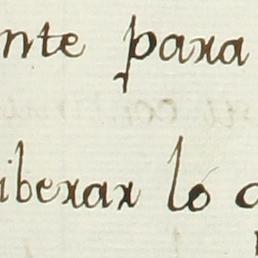 nte para
iberar lo